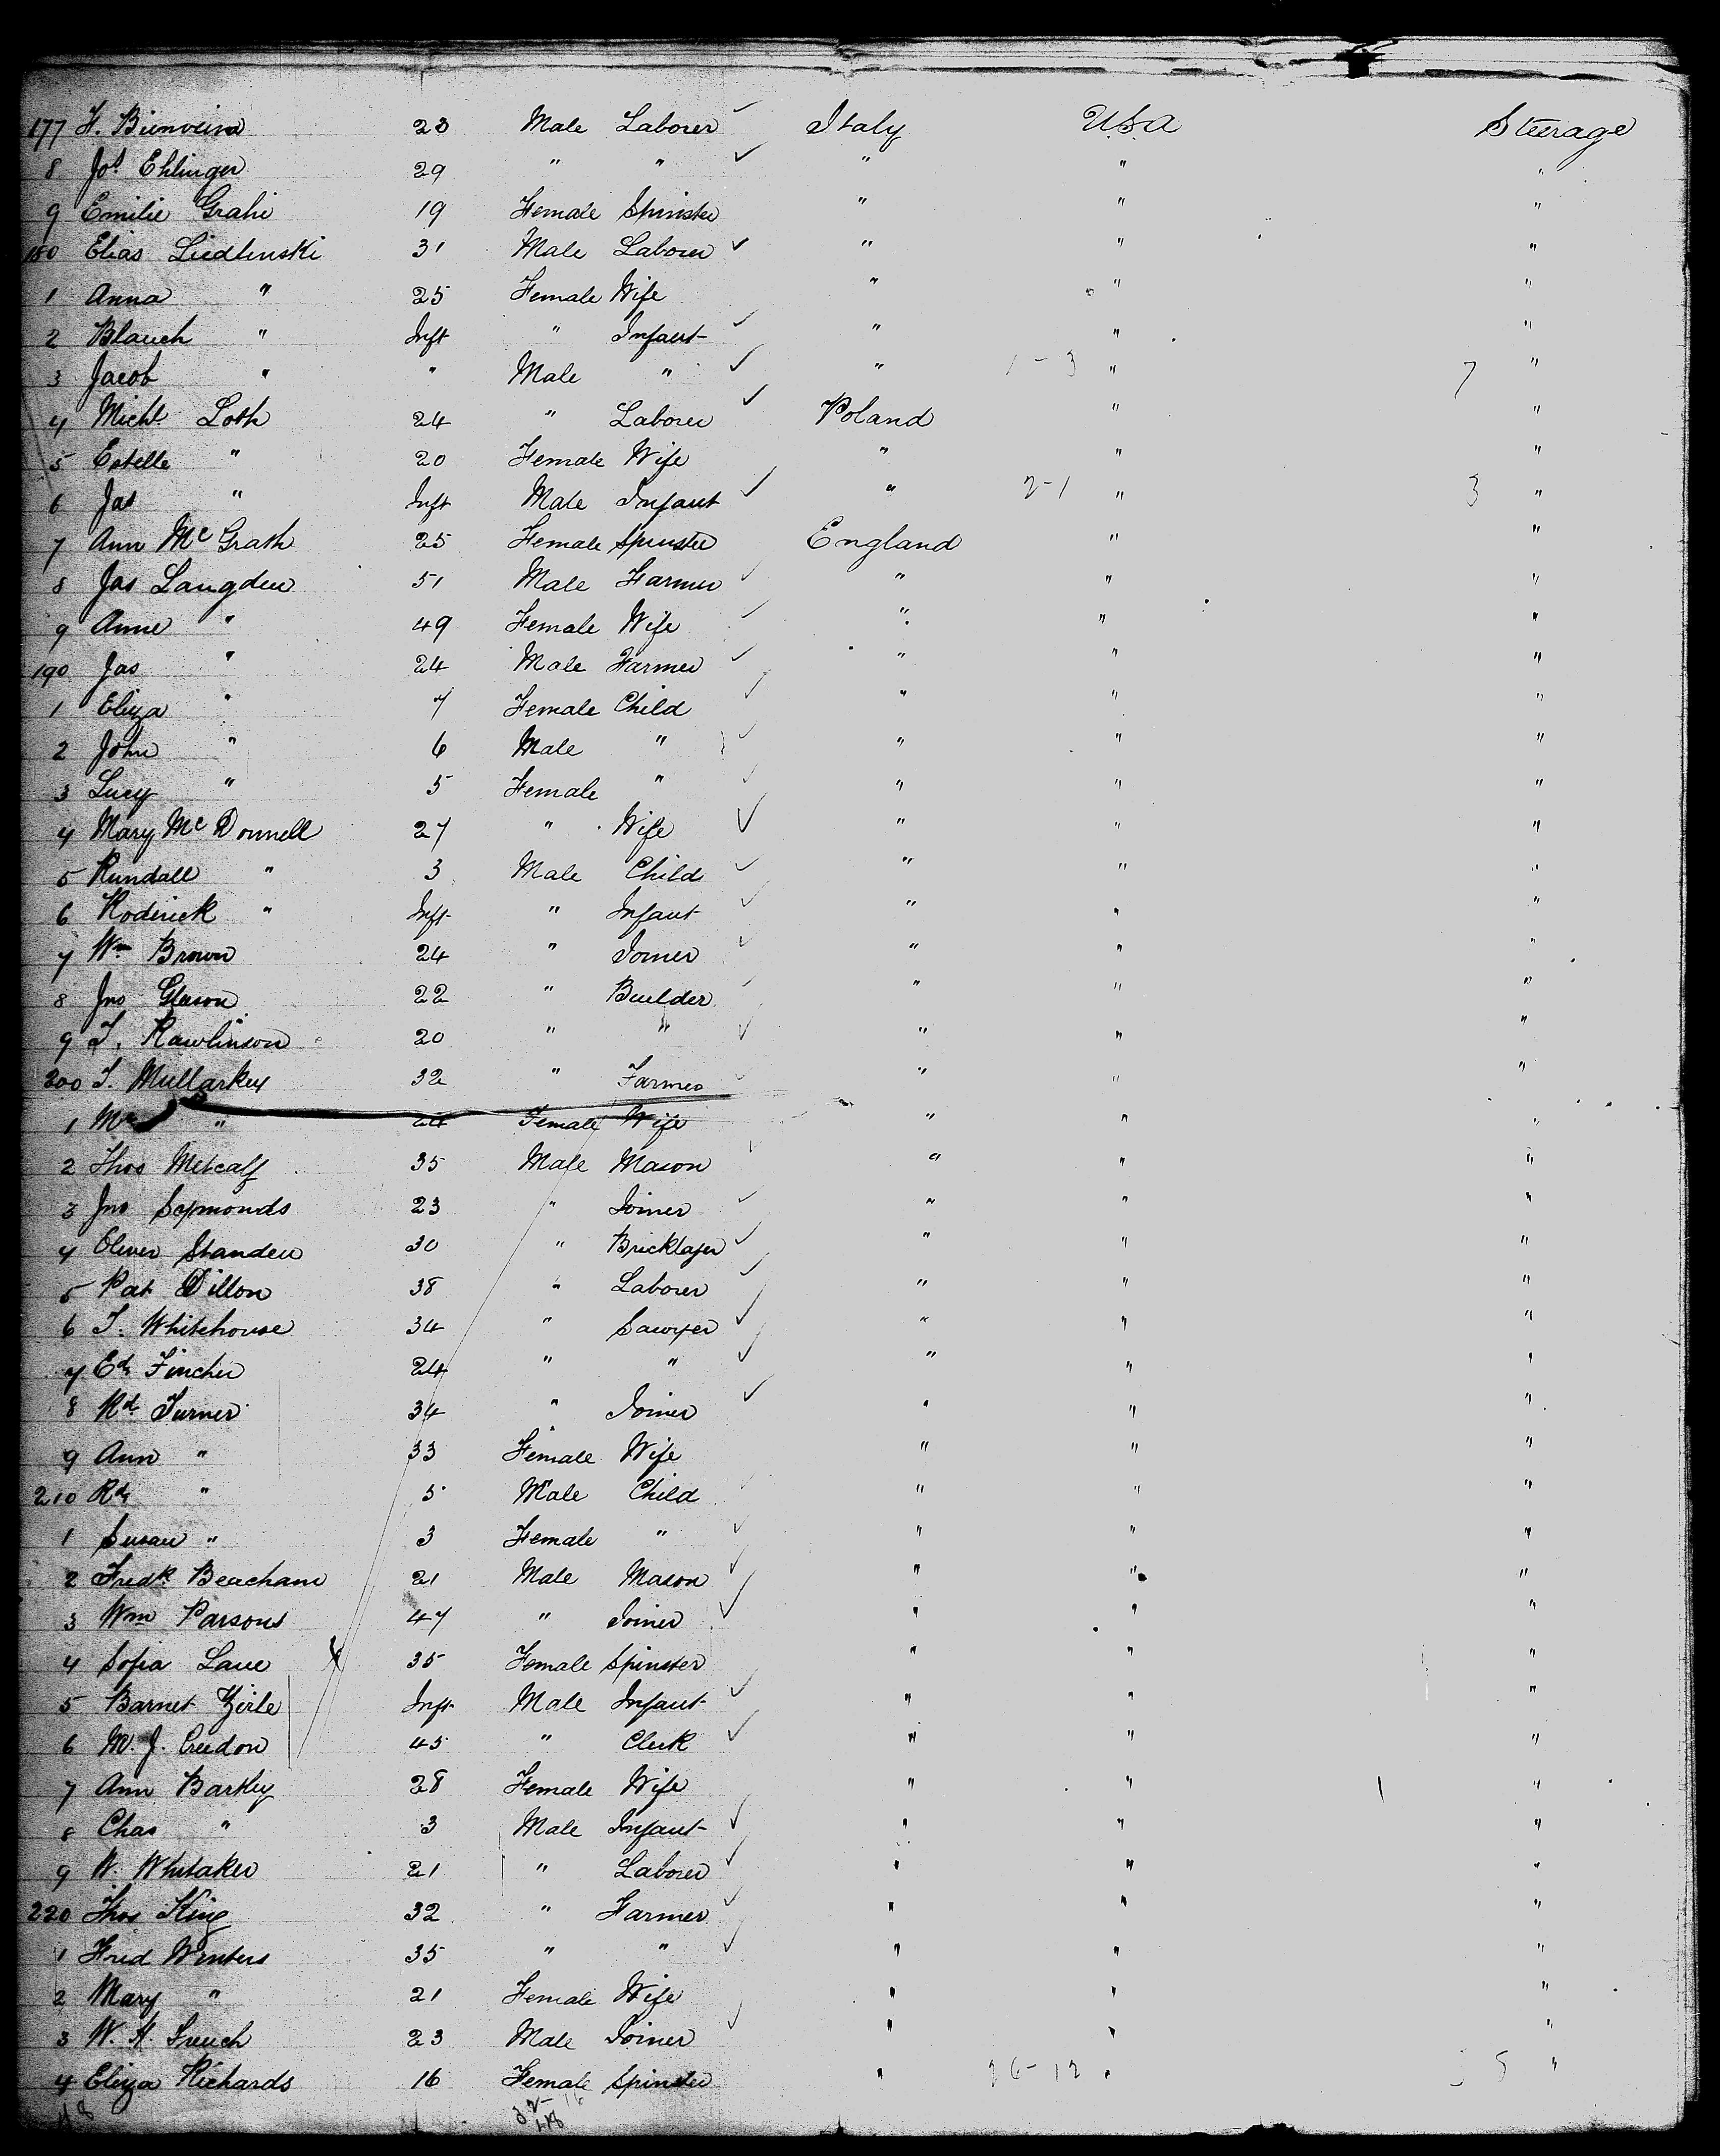 177 F. Bienveind 23 Male Laborer ✓ Italy USA Steerage
8 Jos Ehlinger 29 " " ✓ " " "
9 Emilie Grahi 19 Female Spinster " " "
180 Elias Liedlinski 31 Male Laborer ✓ " " "
1 Anna " 25 Female Wife " " "
2 Blanch " Inft " Infant ✓ " " "
3 Jacob " " Male " ✓ " 1-3 " 7 "
4 Michl Loth 24 " Laborer ✓ Poland " "
5 Estelle " 20 Female Wife " " "
6 Jas " Inft Male Infant ✓ " 2-1 " 3 "
7 Ann Mc Grath 25 Female Spinster England " "
8 Jas Langden 51 Male Farmer ✓ " " "
9 Anne " 49 Female Wife ✓ " " "
190 Jas " 24 Male Farmer ✓ " " "
1 Eliza " 7 Female Child ✓ " " "
2 John " 6 Male " ✓ " " "
3 Lucy " 5 Female " ✓ " " "
4 Mary Mc Donnell 27 " Wife ✓ " " "
5 Rundall " 3 Male Child ✓ " " "
6 Roderick " Inft " Infant ✓ " " "
7 Wm Brown 24 " Joiner ✓ " " "
8 Jno Gleason 22 " Builder ✓ " " "
9 T. Rawlinson 20 " " ✓ " " "
200 T. Mullarkey 32 " Farmer ✓ " " "
1 " 24 Female Wife " " "
2 Thos Metcalf 35 Male Mason " " "
3 Jno Symonds 23 " Joiner ✓ " " "
4 Oliver Standen 30 " Bricklayer ✓ " " "
5 Pat Dillon 38 " Laborer ✓ " " "
6 T. Whitehouse 34 " Sawyer ✓ " " "
7 Ed. Fincher 24 " " ✓ " " "
8 Rd. Turner 34 " Joiner ✓ " " "
9 Ann " 33 Female Wife " " "
210 Rd. " 5 Male Child ✓ " " "
1 Susan " 3 Female " ✓ " " "
2 Fredk Beacham 21 Male Mason ✓ " " "
3 Wm Parsons 47 " Joiner ✓ " " "
4 Sofia Lane X 35 Female Spinster " " "
5 Barnet Zirle Inft Male Infant ✓ " " "
6 M. J. Creedon 45 " Clerk ✓ " " "
7 Ann Barkly 28 Female Wife " " "
8 Chas " 3 Male Infant ✓ " " "
9 W. Whitaker 21 " Laborer ✓ " " "
220 Thos King 32 " Farmer ✓ " " "
1 Fred Winters 35 " " ✓ " " "
2 Mary " 21 Female Wife " " "
3 W. H. French 23 Male Joiner ✓ " " "
4 Eliza Richards 16 Female Spinster " 26-12 " "
48